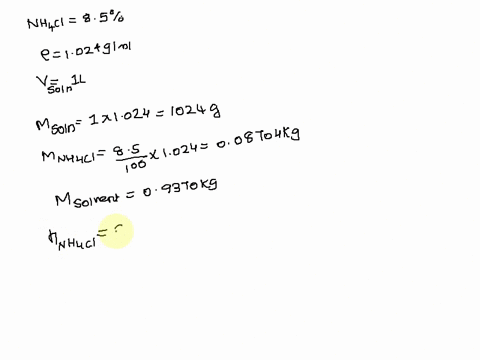 NH4Cl = 8.5%
ρ = 1.024 g/ml
Vsoln = 1L
Msoln = 1 x 1.024 = 1024 g
MNH4Cl = 8.5/100 x 1.024 = 0.08704 Kg
Msolvent = 0.9370 Kg
nNH4Cl =